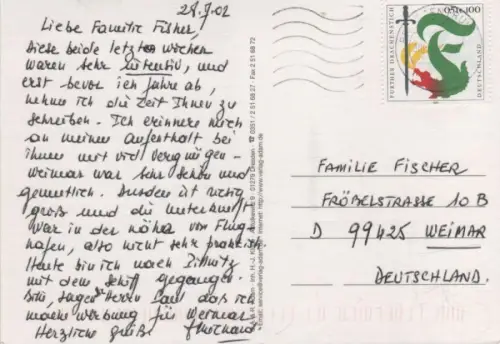 28.7.02
Liebe Familie Fisher,
Diese beide letzten wochen
waren sehr intensiv, und
erst bevor ich fahre ab,
nehme ich die Zeit Ihnen zu
schreiben. Ich erinnere mich
an meinen Aufenthalt bei
ihnen mit viel Vergnügen -
Weimar war sehr schön und
gemütlich. Dresden ist richtig
groß und die Unterkunft
war in der nähe vom Flug-
hafen, also nicht sehr praktisch.
Heute bin ich nach Pillnitz
mit dem Schiff gegangen.
Bitte, sagen Herrn Paul das ich
mache werbung für Weimar
Herzliche grüße
0,51 €
100
FURTHER DRACHENSTICH
DEUTSCHLAND
FAMILIE FISCHER
FRÖBELSTRASSE 10 B
D 99425 WEIMAR
DEUTSCHLAND.
01279 Dresden 0351 / 2 51 68 27 Fax 2 51 68 72